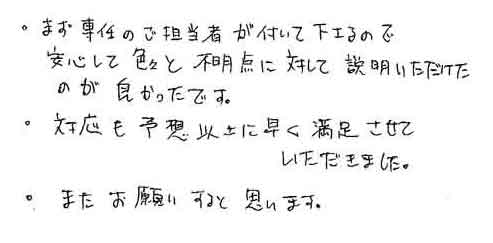 。まず専任のご担当者が付いて下さるので
安心して色々と不明点に対して説明いただけた
のが良かったです。
。対応も予想以上に早く満足させて
いただきました。
。またお願いすると思います。